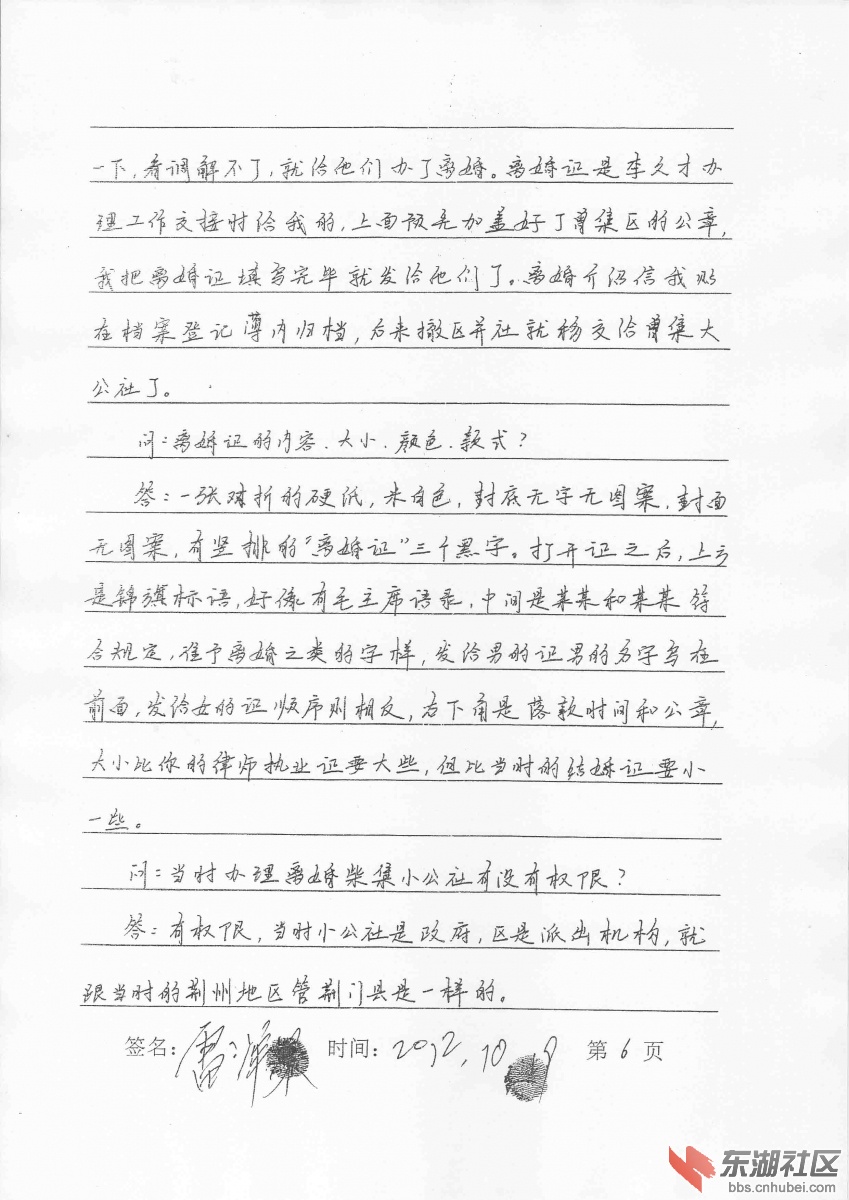 一下，看调解不了，就给他们办了离婚。离婚证是李久才办
理工作交接时给我的，上面预先加盖好了曾集区的公章，
我把离婚证填写完毕就发给他们了。离婚介绍信我贴
在档案登记薄内归档，后来撤区并社就移交给曾集大
公社了。
问：离婚证的内容、大小、颜色、款式？
答：一张对折的硬纸，米白色，封底无字无图案，封面
无图案，有竖排的“离婚证”三个黑字。打开证之后，上方
是锦旗标语，好像有毛主席语录，中间是某某和某某符
合规定，准予离婚之类的字样，发给男的证男的名字写在
前面，发给女的证顺序则相反，右下角是落款时间和公章，
大小比你的律师执业证要大些，但比当时的结婚证要小
一些。
问：当时办理离婚柴集小公社有没有权限？
答：有权限，当时小公社是政府，区是派出机构，就
跟当时的荆州地区管荆门县是一样的。
签名：雷 时间：2012.10 9 第 6 页
东湖社区
bbs.cnhubei.com